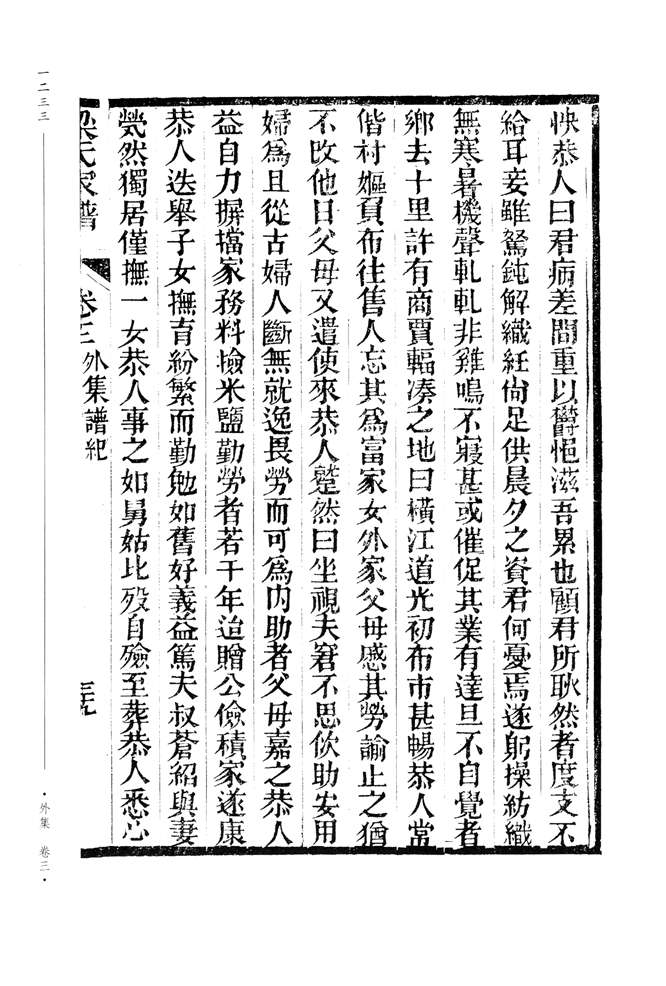 怏恭人曰君病差間重以鬱悒滋吾累也顧君所耿然者度支不
給耳妾雖駑鈍解織紝尙足供晨夕之資君何憂焉遂躬操紡織
無寒暑機聲軋軋非雞鳴不寢甚或催促其業有達旦不自覺者
鄉去十里許有商賈輻湊之地曰橫江道光初布市甚暢恭人常
偕村嫗負布往售人忘其爲富家女外家父母感其勞諭止之猶
不改他日父母又遣使來恭人蹙然曰坐視夫窘不思佽助安用
婦爲且從古婦人斷無就逸畏勞而可爲内助者父母嘉之恭人
益自力摒擋家務料檢米鹽勤勞者若干年迨贈公儉積家遂康
恭人迭舉子女撫育紛繁而勤勉如舊好義益篤夫叔蒼紹與妻
煢然獨居僅撫一女恭人事之如舅姑比歿自殮至葬恭人悉心
梁氏家譜 卷三外集譜紀
一二三三
·外集 卷三·